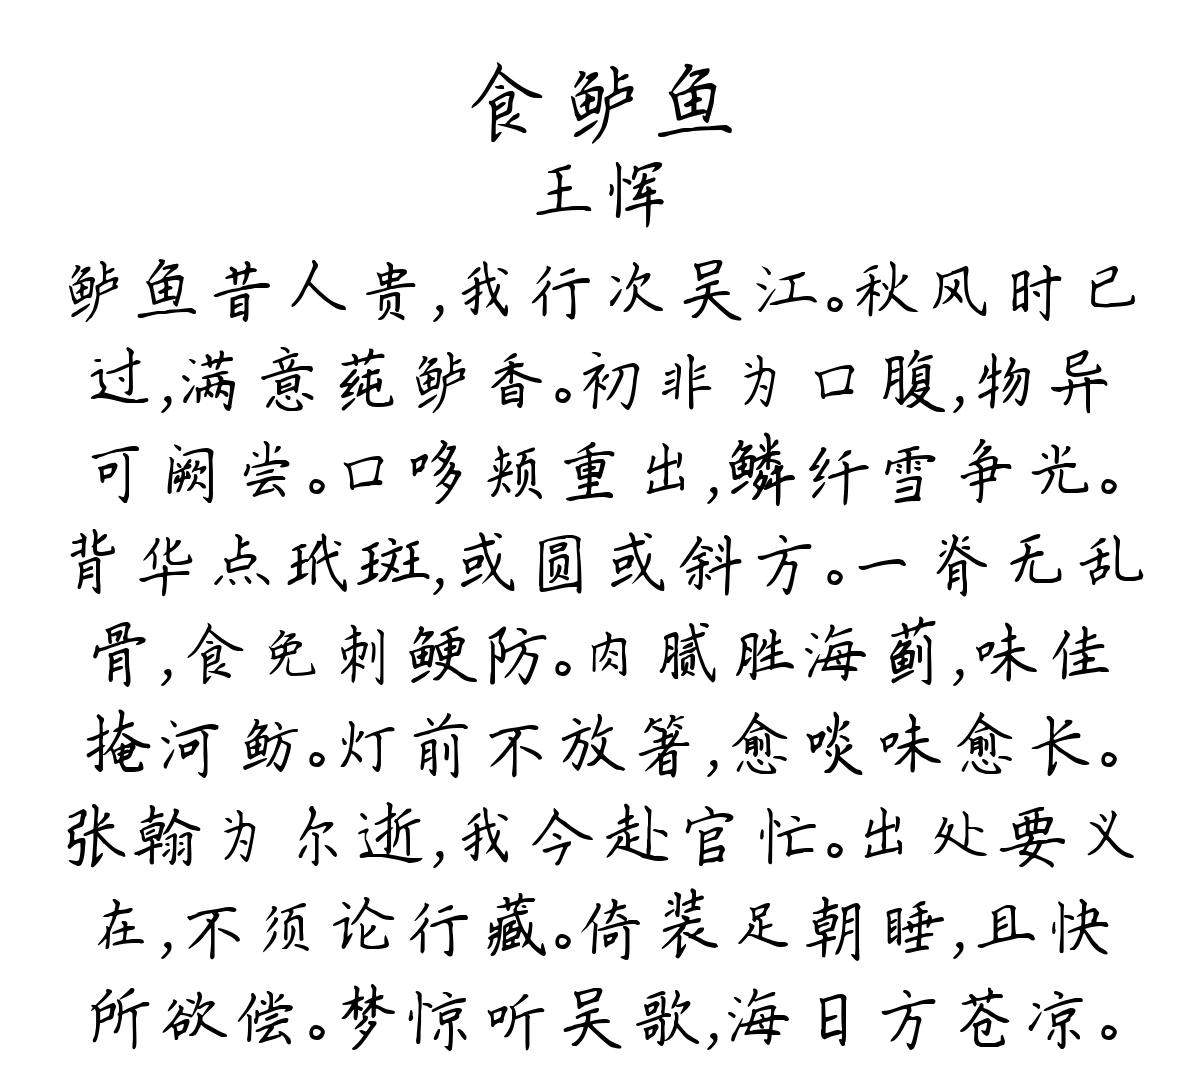 食鲈鱼
王恽
鲈鱼昔人贵,我行次吴江。秋风时已
过,满意莼鲈香。初非为口腹,物异
可阙尝。口哆颊重出,鳞纤雪争光。
背华点玳斑,或圆或斜方。一脊无乱
骨,食免刺鲠防。肉腻胜海蓟,味佳
掩河鲂。灯前不放箸,愈啖味愈长。
张翰为尔逝,我今赴官忙。出处要义
在,不须论行藏。倚装足朝睡,且快
所欲偿。梦惊听吴歌,海日方苍凉。